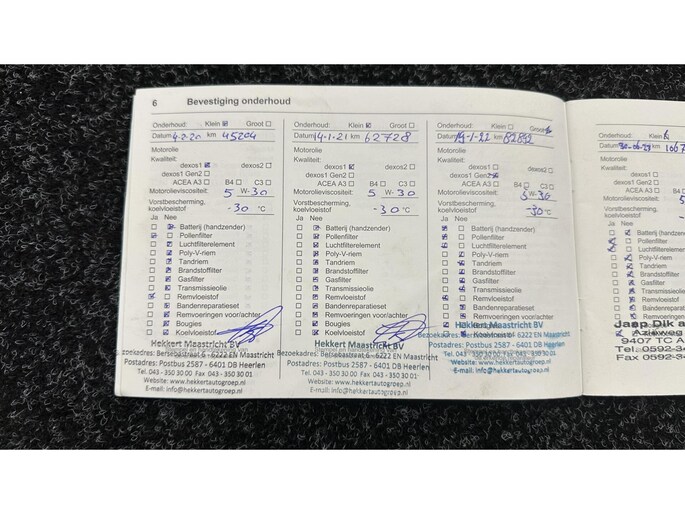 6 Bevestiging onderhoud
Onderhoud: Klein Groot
Datum 4-2-20 km 45204
Motorolie
Kwaliteit:
dexos1 dexos2
dexos1 Gen2
ACEA A3 B4 C3
Motorolieviscositeit: 5 W- 30
Vorstbescherming,
koelvloeistof -30 °C
Ja Nee
Batterij (handzender)
Pollenfilter
Luchtfilterelement
Poly-V-riem
Tandriem
Brandstoffilter
Gasfilter
Transmissieolie
Remvloeistof
Bandenreparatieset
Remvoeringen voor/achter
Bougies
Koelvloeistof
Hekkert Maastricht BV
Bezoekadres: Bersebastraat 6 - 6222 EN Maastricht
Postadres: Postbus 2587 - 6401 DB Heerlen
Tel. 043 - 350 30 00 Fax 043 - 350 30 01
Website: www.hekkertautogroep.nl
E-mail: info@hekkertautogroep.nl
Onderhoud: Klein Groot
Datum 14-1-21 km 62728
Motorolie
Kwaliteit:
dexos1 dexos2
dexos1 Gen2
ACEA A3 B4 C3
Motorolieviscositeit: 5 W- 30
Vorstbescherming,
koelvloeistof -30 °C
Ja Nee
Batterij (handzender)
Pollenfilter
Luchtfilterelement
Poly-V-riem
Tandriem
Brandstoffilter
Gasfilter
Transmissieolie
Remvloeistof
Bandenreparatieset
Remvoeringen voor/achter
Bougies
Koelvloeistof
Hekkert Maastricht BV
Postadres: Postbus 2587 - 6401 DB Heerlen
Tel. 043 - 350 30 00 Fax 043 - 350 30 01
Website: www.hekkertautogroep.nl
E-mail: info@hekkertautogroep.nl
Onderhoud: Klein Groot
Datum km 82892
Motorolie
Kwaliteit:
dexos1 dexos2
dexos1 Gen2
ACEA A3 B4 C3
Motorolieviscositeit: 5 W- 30
Vorstbescherming,
koelvloeistof -30 °C
Ja Nee
Batterij (handzender)
Pollenfilter
Luchtfilterelement
Poly-V-riem
Tandriem
Brandstoffilter
Gasfilter
Transmissieolie
Remvloeistof
Bandenreparatieset
Remvoeringen voor/achter
Bougies
Koelvloeistof
Hekkert Maastricht BV
Postadres: Postbus 2587 - 6401 DB Heerlen
Website: www.hekkertautogroep.nl
E-mail: info@hekkertautogroep.nl
Onderhoud: Klein
Datum km
Motorolie
Kwaliteit:
dexos1
dexos1 Gen2
ACEA A3
Motorolieviscositeit: 5
Vorstbescherming,
koelvloeistof
Ja Nee
Batterij (
Pollenfilter
Luchtfilter
Poly-V-riem
Tandriem
Brandstof
Gasfilter
Transmis
Remvloei
Jaap Dik
Azieweg
9407 TC A
Tel. 0592-3
Fax 0592-3